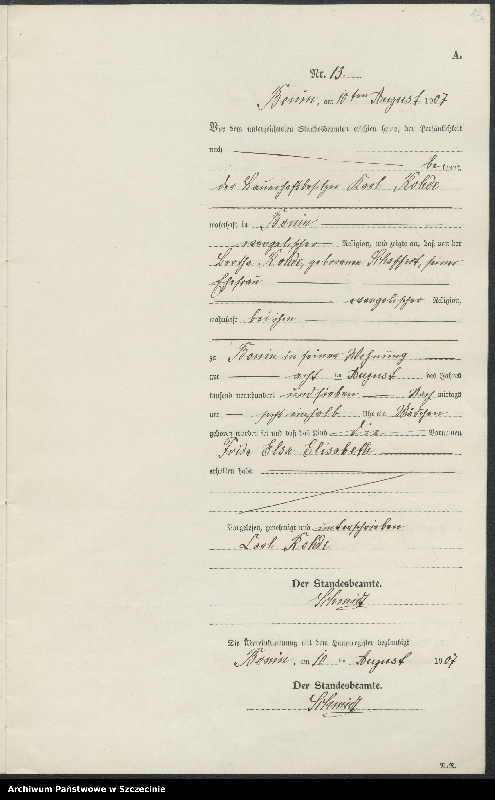 A.
Nr. 13
Bonin, am 10ten August 1907
Vor dem unterzeichneten Standesbeamten erschien heute, der Persönlichkeit
nach
be kannt,
der Bauerhofsbesitzer Karl Rohde
wohnhaft in Bonin
evangelischer Religion, und zeigte an, daß von der
Bertha Rohde, geborenen seiner
Ehefrau
evangelischer Religion,
wohnhaft bei ihm
zu Bonin in seiner Wohnung
am acht ten August des Jahres
tausend neunhundert und sieben Nach mittags
um sechs einhalb Uhr ein Mädchen
geboren worden sei und daß das Kind die Vornamen
Frida Elsa Elisabeth
erhalten habe.
Vorgelesen, genehmigt und unterschrieben
Carl Rohde
Der Standesbeamte.
Schmidt
Die Übereinstimmung mit dem Hauptregister beglaubigt
Bonin, am 10 ten August 1907
Der Standesbeamte.
Schmidt
Archiwum Państwowe w Szczecinie